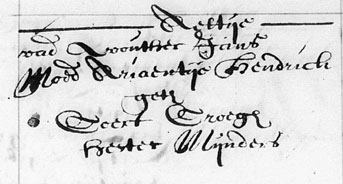 Aeltije
vad Woutter Jans
Moed Ariaentije Hendrick
get
Teert Troegh
Hester Mijnders